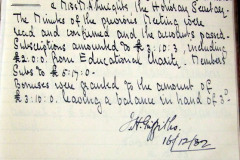 & Mrs Almught the Holiday Secretary
The Minutes of the previous Meeting were
read and confirmed and the accounts passed.
Subscriptions amounted to £3:10:3, including
£2.0.10 from Educational Charity. Members
Subs to £5:17:0-
Bonuses were granted to the amount of
£3:10:0. leaving a balance in hand of 3-
J H Griffiths.
16/12/32